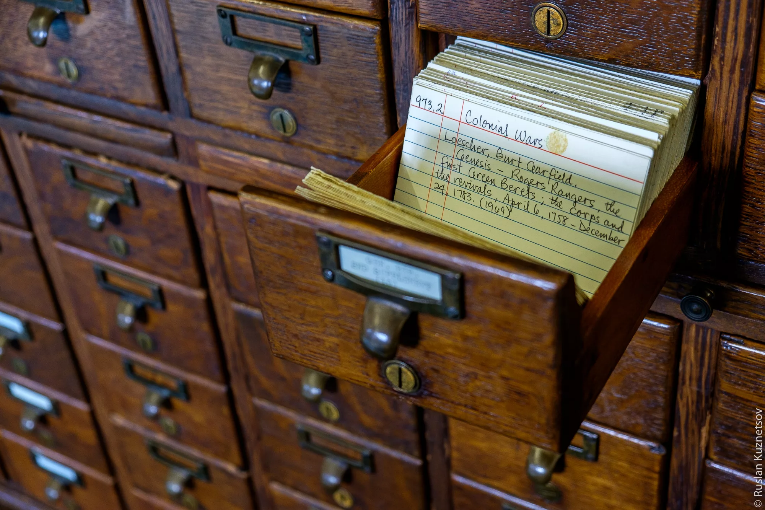 973.2
Colonial Wars
Loescher, Burt Garfield.
Genesis - Rogers Rangers, the
First Green Berets; the Corps and
the revivals, April 6, 1758 - December
24, 1783. (1969)
© Ruslan Kuznetsov